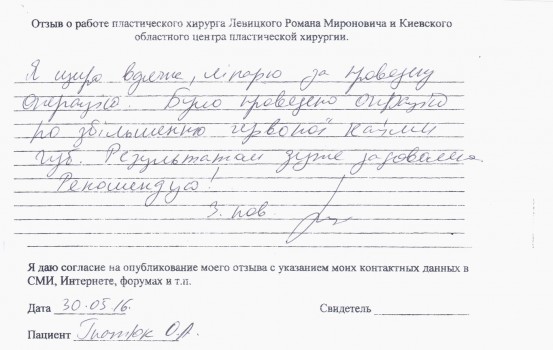 Отзыв о работе пластического хирурга Левицкого Романа Мироновича и Киевского
областного центра пластической хирургии.
Я щиро вдячна, лікарю за проведену
операцію. Було проведено операцію
по збільшенню червоної кайми
губ. Результатом дуже задоволена.
Рекомендую!
З пов.
Я даю согласие на опубликование моего отзыва с указанием моих контактных данных в
СМИ, Интернете, форумах и т.п.
Дата 30.05.16. Свидетель
Пациент О.А.